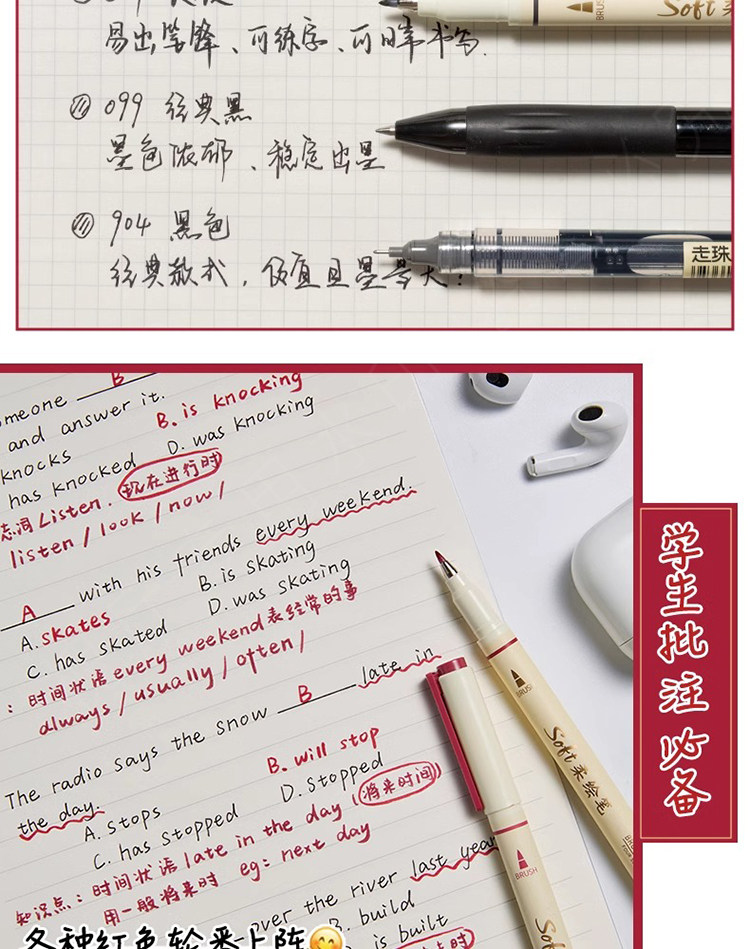 易出笔锋、可练字、可日常书写.
BRUSH
Soft柔
099 经典黑
墨色浓郁、稳定出墨
904 黑色
经典款式,便宜且墨量大!
走珠
B
meone
and answer it.
B. is knocking
knocks
D. was knocking
has knocked
现在进行时
志词Listen.
listen / look / now /
A with his friends every weekend.
A. skates
B. is skating
C. has skated
D. was skating
: 时间状语 every weekend 表经常的事
always / usually / often /
The radio says the snow B late in
the day.
B. will stop
A. stops
D. stopped
C. has stopped
(将来时间)
知识点: 时间状语 late in the day
用一般将来时 eg: next day
over the river last year
B. build
is built
BRUSH
Soft柔绘笔
BRUSH
Soft
学生批注必备
各种红色轮番上阵😋